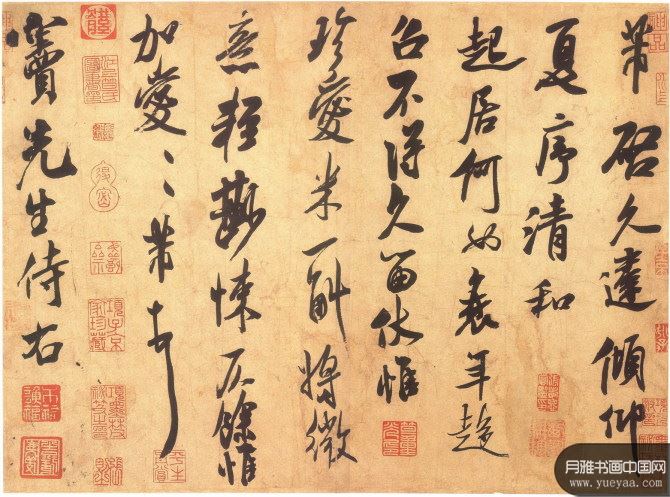 芾啓久違傾仰
夏序清和
起居何如衰年趍
召不得久留伏惟
珍愛米一斛將微
意輕尠悚仄餘惟
加愛〻芾頓首
竇先生侍右
項子京家珍藏
月雅书画中国网
www.yueyaa.com